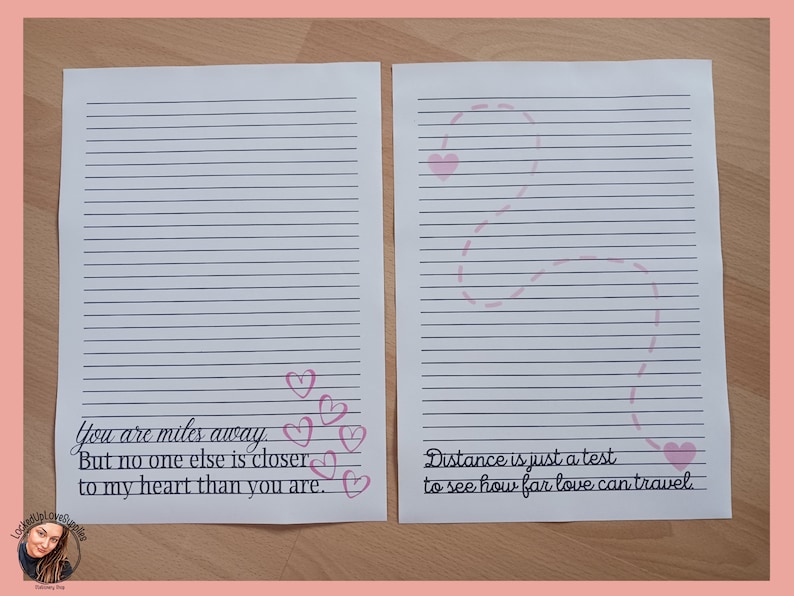 You are miles away.
But no one else is closer
to my heart than you are.
Distance is just a test
to see how far love can travel.
LockedUpLoveSupplies
Stationery Shop